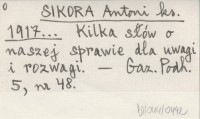 SIKORA Antoni ks.
1917... Kilka słów o
naszej sprawie dla uwagi
i rozwagi. — Gaz. Podh.
5, nr 48.